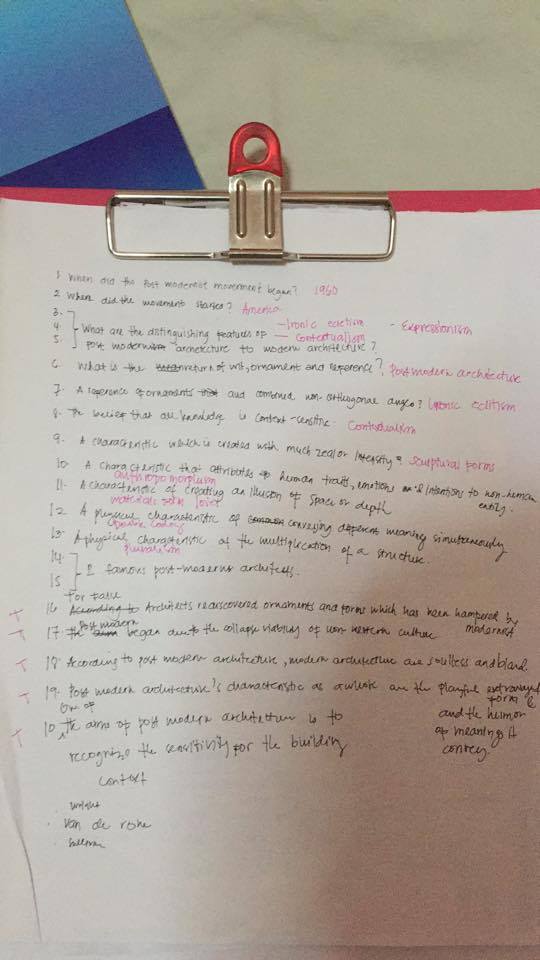 1. When did the Post modernist movement began? 1960
2. Where did the movement started? America
3.
4. What are the distinguishing features of - Ironic eclectism - Expressionism
5. post modern architecture to modern architecture? - Contextualism
6. What is the return of wit, ornament and reference? Post modern architecture
7. A reference of ornaments and combined non-orthogonal angles? Ironic eclitism
8. The belief that all knowledge is context-sensitive. Contextualism
9. A characteristic which is created with much zeal or intensity? Sculptural forms
10. A characteristic that attributes human traits, emotions & intentions to non-human entity.
anthropomorphism
11. A characteristic of creating an illusion of space or depth
12. A physical characteristic of conveying different meaning simultaneously
Double coding
13. A physical characteristic of the multiplication of a structure.
pluralism
14.
15 2 famous post-moderns architects.
For false
16. According to Architects rediscovered ornaments and forms which has been hampered by modernist
Post modern
17. The began due to the collapse viability of non western culture
18. According to post modern architecture, modern architecture are soulless and bland.
19. Post modern architecture's characteristic as a whole are the playful extravagant form &
and the humor of meanings it convey
One of
10. The aims of post modern architecture is to
recognize the sensitivity for the building
context
. wright
. van de rohe